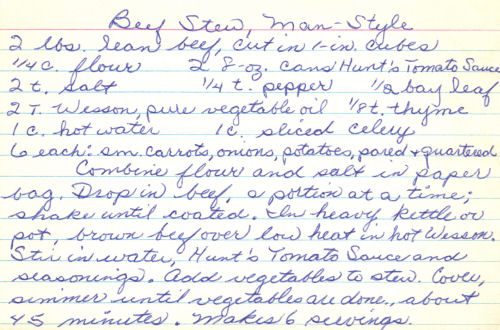 Beef Stew, Man-Style
2 lbs. lean beef, cut in 1-in. cubes
1/4 c. flour 2 8-oz. cans Hunt's Tomato Sauce
2 t. salt 1/4 t. pepper 1/2 bay leaf
2 T. Wesson, pure vegetable oil 1/8 t. thyme
1 c. hot water 1 c. sliced celery
6 each: sm. carrots, onions, potatoes, pared & quartered
Combine flour and salt in paper
bag. Drop in beef, a portion at a time;
shake until coated. In heavy kettle or
pot, brown beef over low heat in hot Wesson.
Stir in water, Hunt's Tomato Sauce and
seasonings. Add vegetables to stew. Cover,
simmer until vegetables are done, about
45 minutes. Makes 6 servings.